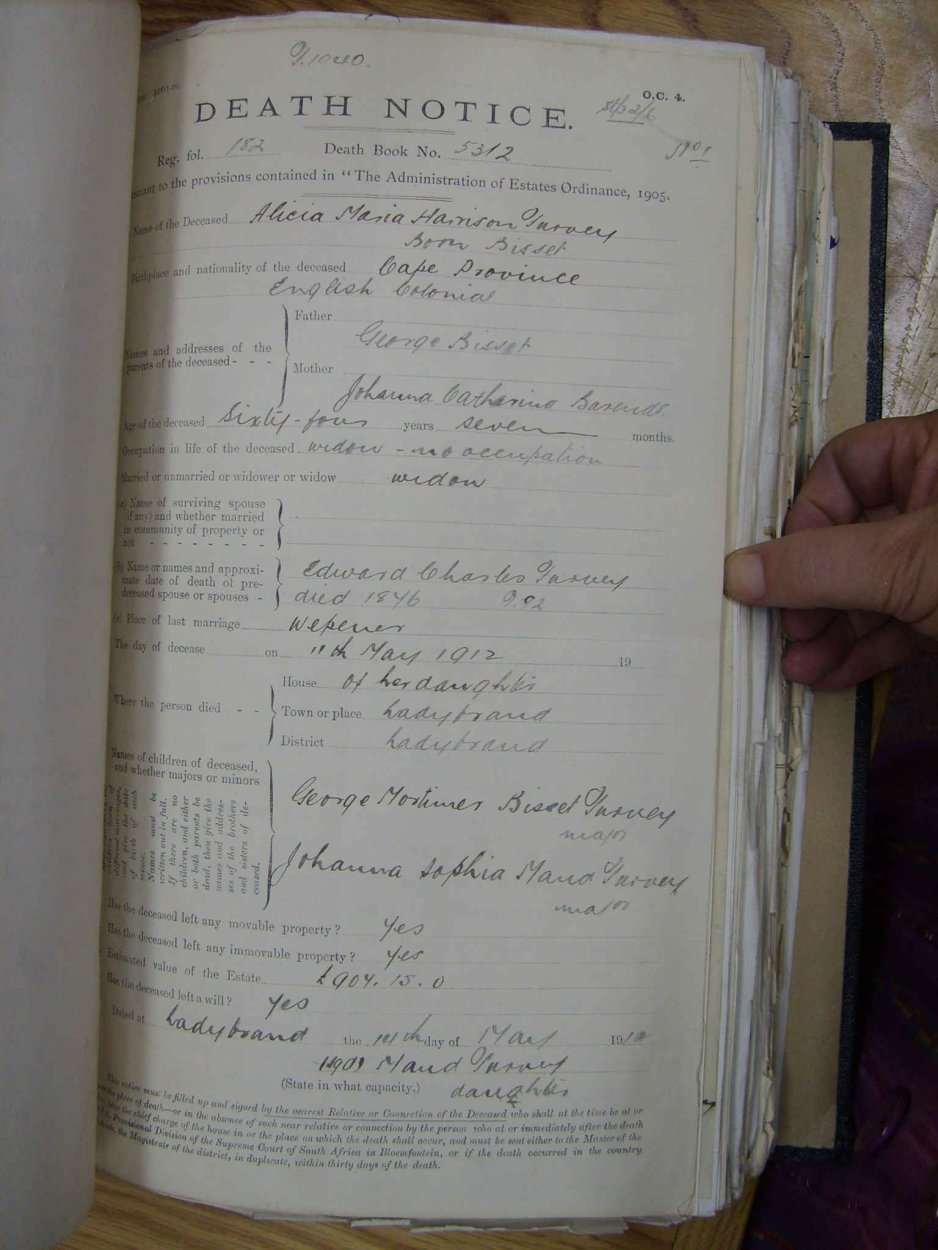 DEATH NOTICE.
O.C. 4.
Reg. fol. 182 Death Book No. 5312
to the provisions contained in "The Administration of Estates Ordinance, 1905.
Name of the Deceased Alicia Maria Harrison Turvey
Born Bisset
Birthplace and nationality of the deceased Cape Province
English Colonial
Names and addresses of the parents of the deceased - - -
Father
George Bisset
Mother
Johanna Catharina
Age of the deceased Sixty-four years seven months.
Occupation in life of the deceased widow - no occupation
Married or unmarried or widower or widow widow
(a) Name of surviving spouse
(if any) and whether married
in community of property or
not - - - - - - -
(b) Name or names and approxi-
mate date of death of pre-
deceased spouse or spouses -
Edward Charles Turvey
died 1876
(c) Place of last marriage Wepener
The day of decease on 11th May 1912 19
Where the person died - -
House of her daughter
Town or place Ladybrand
District Ladybrand
Names of children of deceased,
and whether majors or minors
Names must be
written out in full.
If there are no
children, and either
or both parents be
dead, then give the
names and address-
es of the brothers
and sisters of de-
ceased.
George Mortimer Bisset Turvey
major
Johanna Sophia Maud Turvey
major
Has the deceased left any movable property? Yes
Has the deceased left any immovable property? Yes
Estimated value of the Estate £904.15.0
Has the deceased left a will? Yes
Dated at Ladybrand the 14th day of May 19
Maud Turvey
(State in what capacity.) daughter
This notice must be filled up and signed by the nearest Relative or Connection of the Deceased who shall at the time be at or
the place of death—or in the absence of such near relative or connection by the person who at or immediately after the death
the chief charge of the house in or the place on which the death shall occur, and must be sent either to the Master of the
Provisional Division of the Supreme Court of South Africa in Bloemfontein, or if the death occurred in the country
the Magistrate of the district, in duplicate, within thirty days of the death.